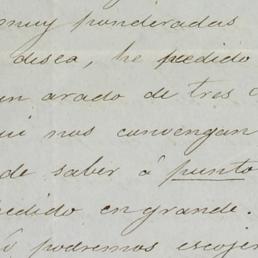 muy ponderadas
deseo, he pedido
un arado de tres
nos convengan
de saber á punto
pedido en grande.
podremos escojer